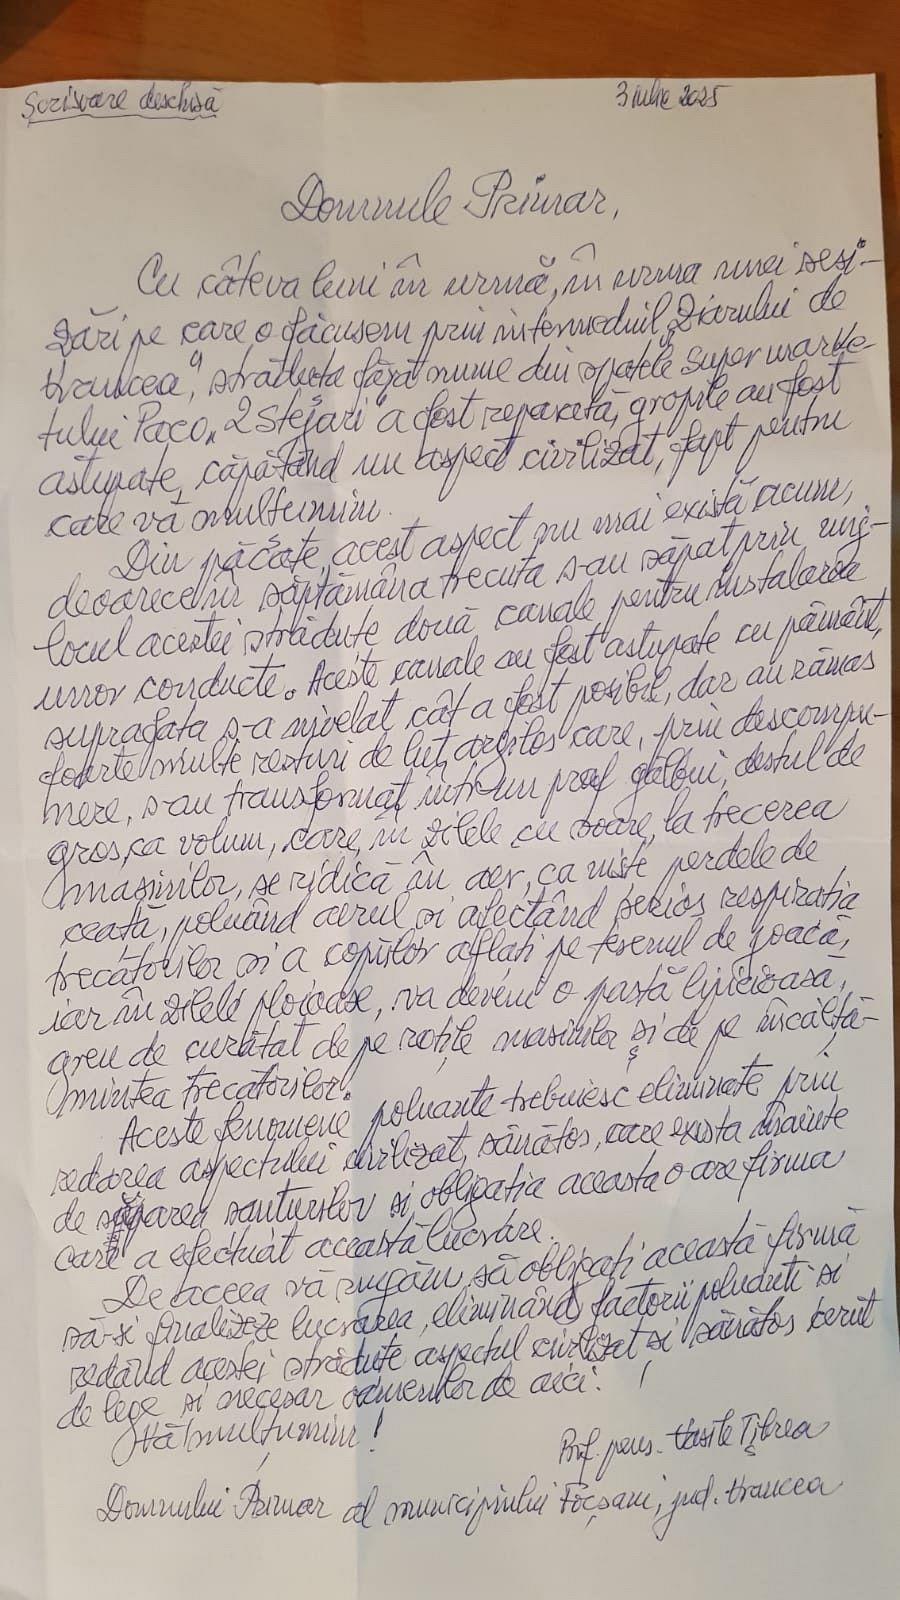 Scrisoare deschisă
3 iulie 2025
Domnule Primar,
Cu câteva luni în urmă, în urma unei sesi-
zări pe care o făcusem prin intermediul „Ziarului de
Vrancea", străduța fără nume din spatele supermarke-
tului Paco „2 Stejari" a fost reparată, gropile au fost
astupate, căpătând un aspect civilizat, fapt pentru
care vă mulțumim.
Din păcate, acest aspect nu mai există acum,
deoarece în săptămâna trecută s-au săpat prin mij-
locul acestei străduțe două canale pentru instalarea
unor conducte. Aceste canale au fost astupate cu pământ,
suprafața s-a nivelat cât a fost posibil, dar au rămas
foarte multe resturi de lut argilos care, prin descompu-
nere, s-au transformat într-un praf gălbui, destul de
gros, ca volum, care, în zilele cu soare, la trecerea
mașinilor, se ridică în aer, ca niște perdele de
ceață, poluând aerul și afectând serios respirația
trecătorilor și a copiilor aflați pe terenul de joacă,
iar în zilele ploioase, va deveni o pastă lipicioasă,
greu de curățat de pe roțile mașinilor și de pe încălță-
mintea trecătorilor.
Aceste fenomene poluante trebuiesc eliminate prin
redarea aspectului civilizat, sănătos, care exista înainte
de săparea șanțurilor și obligația aceasta o are firma
care a efectuat această lucrare.
De aceea vă rugăm, să obligați această firmă
să-și finalizeze lucrarea, eliminând factorii poluanți și
redând acestei străduțe aspectul civilizat și sănătos cerut
de lege și necesar oamenilor de aici.
Vă mulțumim!
Prof. pens. Vasile Țibrea
Domnului Primar al municipiului Focșani, jud. Vrancea